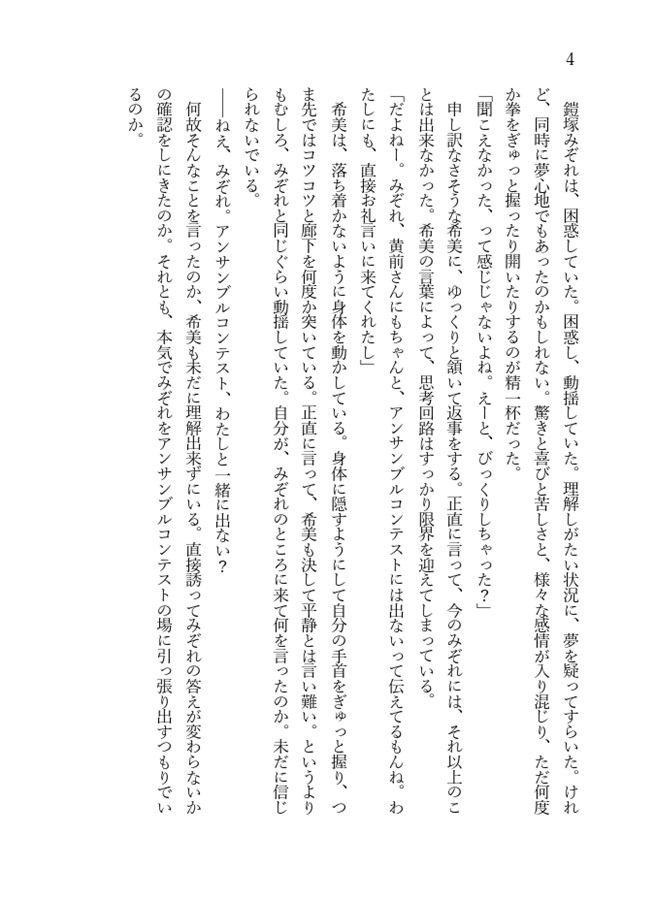 4
　鎧塚みぞれは、困惑していた。困惑し、動揺していた。理解しがたい状況に、夢を疑ってすらいた。けれ
ど、同時に夢心地でもあったのかもしれない。驚きと喜びと苦しさと、様々な感情が入り混じり、ただ何度
か拳をぎゅっと握ったり開いたりするのが精一杯だった。
「聞こえなかった、って感じじゃないよね。えーと、びっくりしちゃった？」
　申し訳なさそうな希美に、ゆっくりと頷いて返事をする。正直に言って、今のみぞれには、それ以上のこ
とは出来なかった。希美の言葉によって、思考回路はすっかり限界を迎えてしまっている。
「だよねー。みぞれ、黄前さんにもちゃんと、アンサンブルコンテストには出ないって伝えてるもんね。わ
たしにも、直接お礼言いに来てくれたし」
　希美は、落ち着かないように身体を動かしている。身体に隠すようにして自分の手首をぎゅっと握り、つ
ま先ではコツコツと廊下を何度か突いている。正直に言って、希美も決して平静とは言い難い。というより
もむしろ、みぞれと同じぐらい動揺していた。自分が、みぞれのところに来て何を言ったのか。未だに信じ
られないでいる。
――ねえ、みぞれ。アンサンブルコンテスト、わたしと一緒に出ない？
　何故そんなことを言ったのか、希美も未だに理解出来ずにいる。直接誘ってみぞれの答えが変わらないか
の確認をしにきたのか。それとも、本気でみぞれをアンサンブルコンテストの場に引っ張り出すつもりでい
るのか。